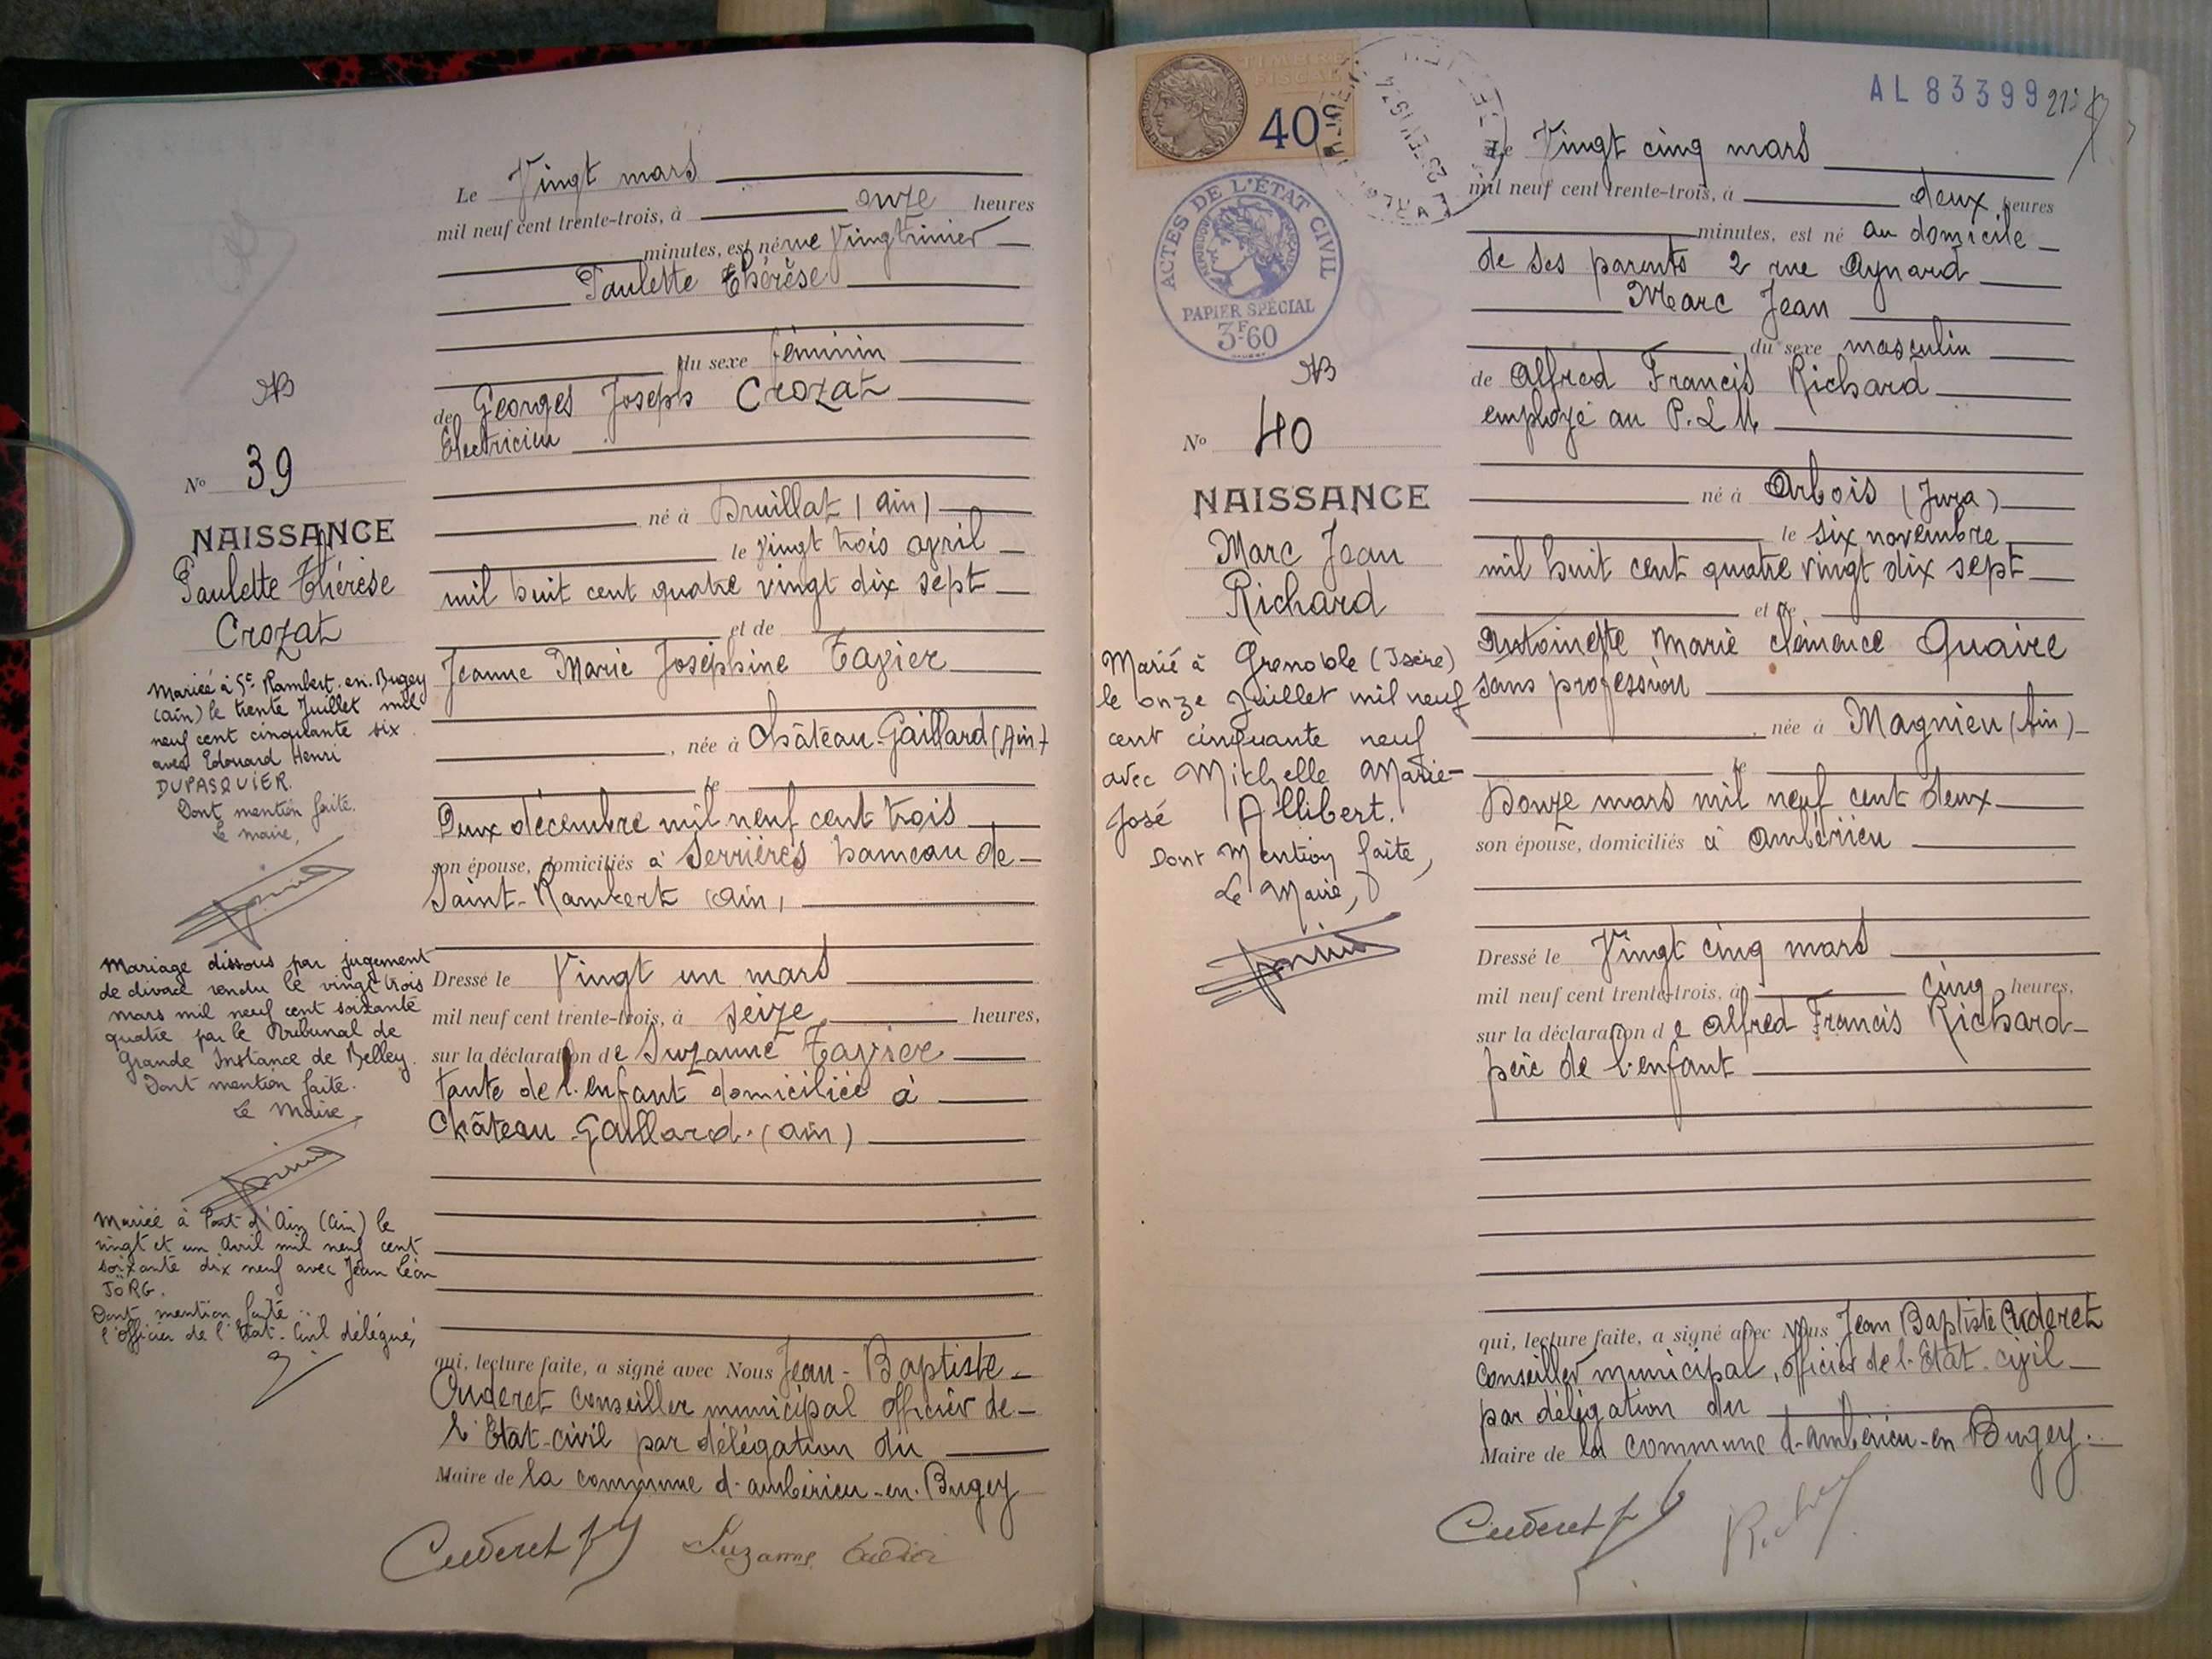 Le Vingt mars
mil neuf cent trente-trois, à onze heures
minutes, est né rue Vingtrinier
Paulette Thérèse
du sexe féminin
de Georges Joseph Crozat
Electricien
né à Druillat (Ain)
le vingt trois avril
mil huit cent quatre vingt dix sept
et de
Jeanne Marie Joséphine Tavier
, née à Château-Gaillard (Ain)
le
Deux décembre mil neuf cent trois
son épouse, domiciliés à Serrières hameau de
Saint-Rambert (Ain)
Dressé le Vingt un mars
mil neuf cent trente-trois, à seize heures,
sur la déclaration de Suzanne Tavier
tante de l'enfant domiciliée à
Château-Gaillard (Ain)
qui, lecture faite, a signé avec Nous Jean-Baptiste
Cuderet conseiller municipal officier de
l'Etat-civil par délégation du
Maire de la commune d'Ambérieu-en-Bugey
Cuderet
Suzanne Tavier
AB
No 39
NAISSANCE
Paulette Thérèse
Crozat
Mariée à St Rambert-en-Bugey
(Ain) le trente Juillet mil
neuf cent cinquante six
avec Edouard Henri
DUPASQUIER.
Dont mention faite.
Le maire,
Mariage dissous par jugement
de divorce rendu le vingt trois
mars mil neuf cent soixante
quatre par le Tribunal de
Grande Instance de Belley.
Dont mention faite.
Le Maire,
Mariée à Pont d'Ain (Ain) le
vingt et un Avril mil neuf cent
soixante dix neuf avec Jean Léon
JÖRG.
Dont mention faite
l'officier de l'Etat-Civil délégué,
TIMBRE
FISCAL
40
AL 83399
ACTES DE L'ÉTAT CIVIL
RÉPUBLIQUE FRANÇAISE
PAPIER SPÉCIAL
3F60
AB
No 40
NAISSANCE
Marc Jean
Richard
Marié à Grenoble (Isère)
le onze Juillet mil neuf
cent cinquante neuf
avec Michelle Marie-
José Allibert.
Dont Mention faite,
Le Maire,
Le Vingt cinq mars
mil neuf cent trente-trois, à deux heures
minutes, est né au domicile
de ses parents 2 rue Aynard
Marc Jean
du sexe masculin
de Alfred Francis Richard
employé au P.L.M.
né à Arbois (Jura)
le six novembre
mil huit cent quatre vingt dix sept
et de
Antoinette Marie Clémence Quaire
sans profession
, née à Magnieu (Ain)
le
Douze mars mil neuf cent deux
son épouse, domiciliés à Ambérieu
Dressé le Vingt cinq mars
mil neuf cent trente-trois, à cinq heures,
sur la déclaration de Alfred Francis Richard
père de l'enfant
qui, lecture faite, a signé avec Nous Jean Baptiste Cuderet
conseiller municipal, officier de l'Etat-civil
par délégation du
Maire de la commune d'Ambérieu-en-Bugey.
Cuderet